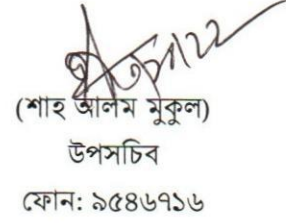 (শাহ আলম মুকুল)
উপসচিব
ফোন: ৯৫৪৬৭১৬